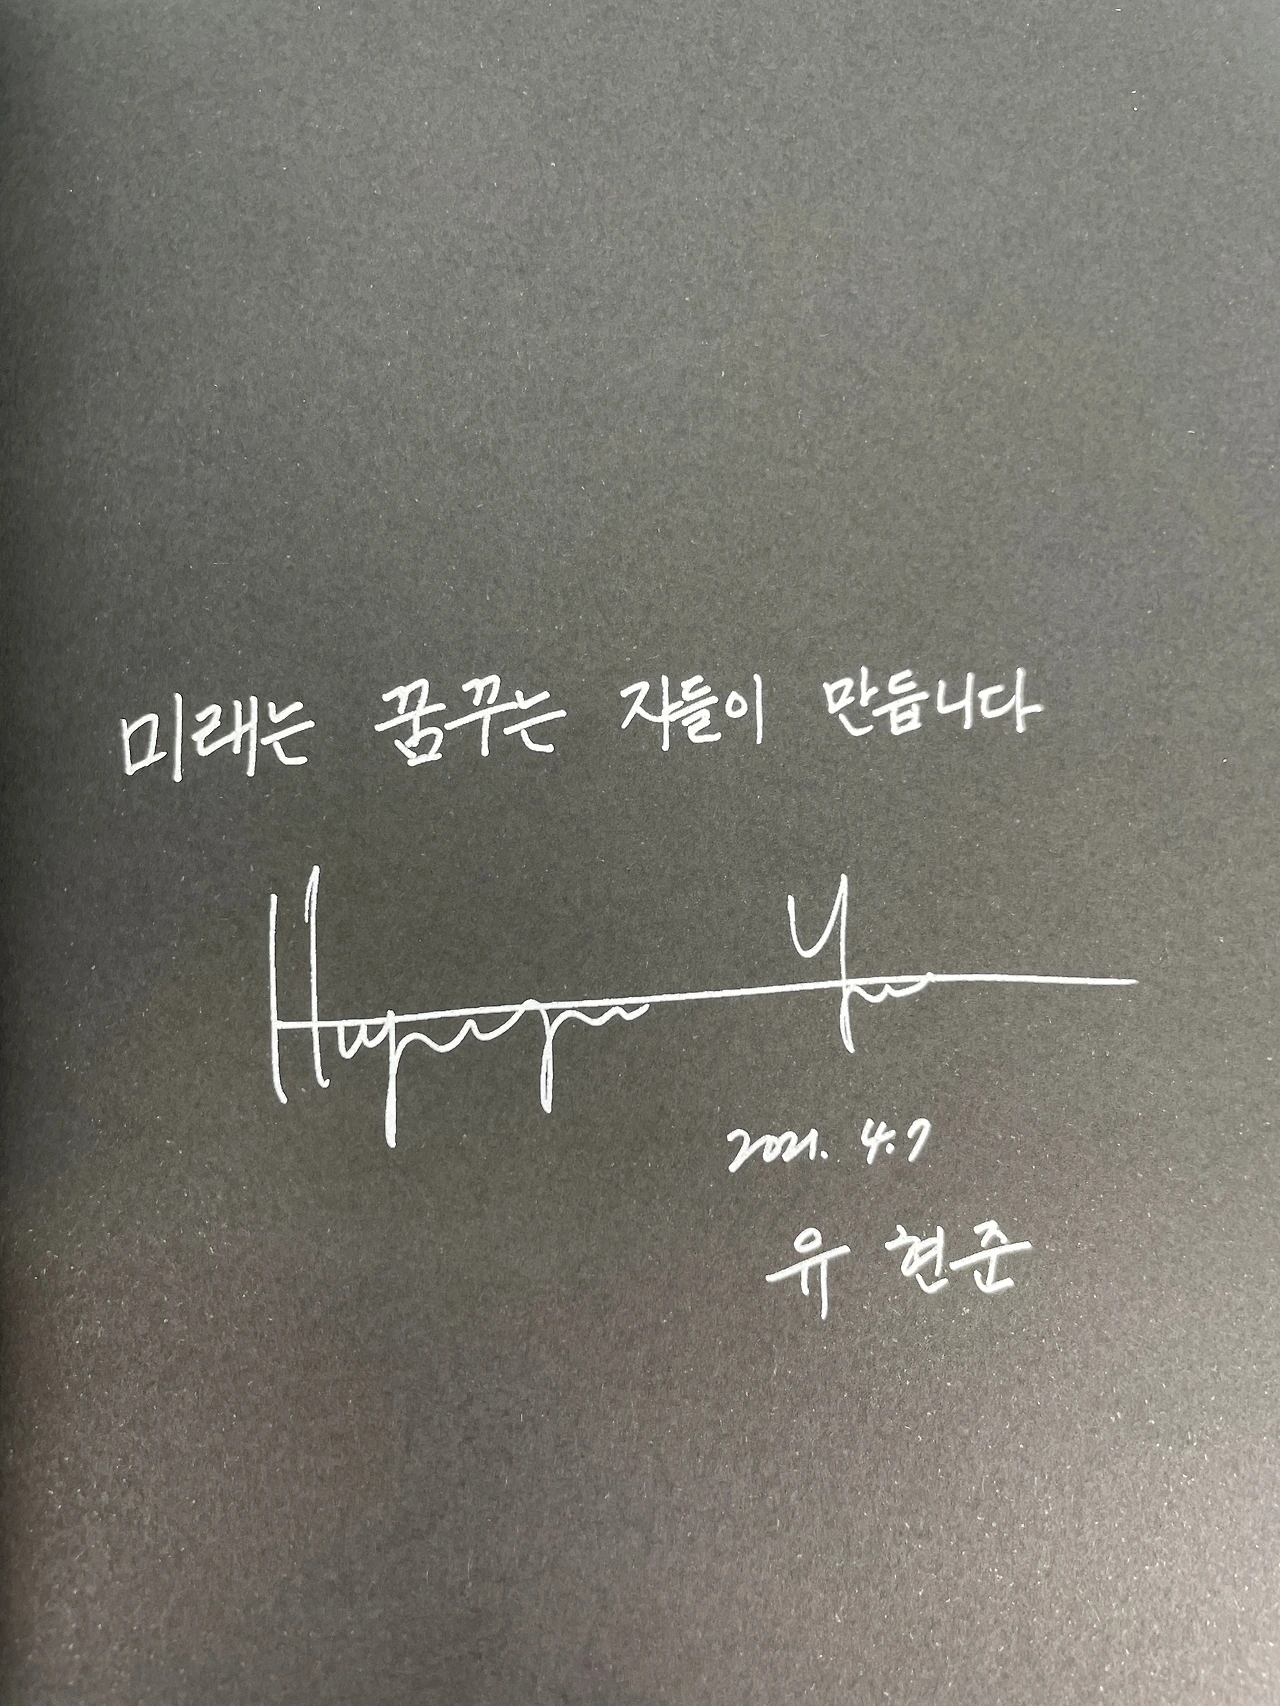 미래는 꿈꾸는 자들이 만듭니다
Hyunjoon Yoo
2021. 4.7
유 현준